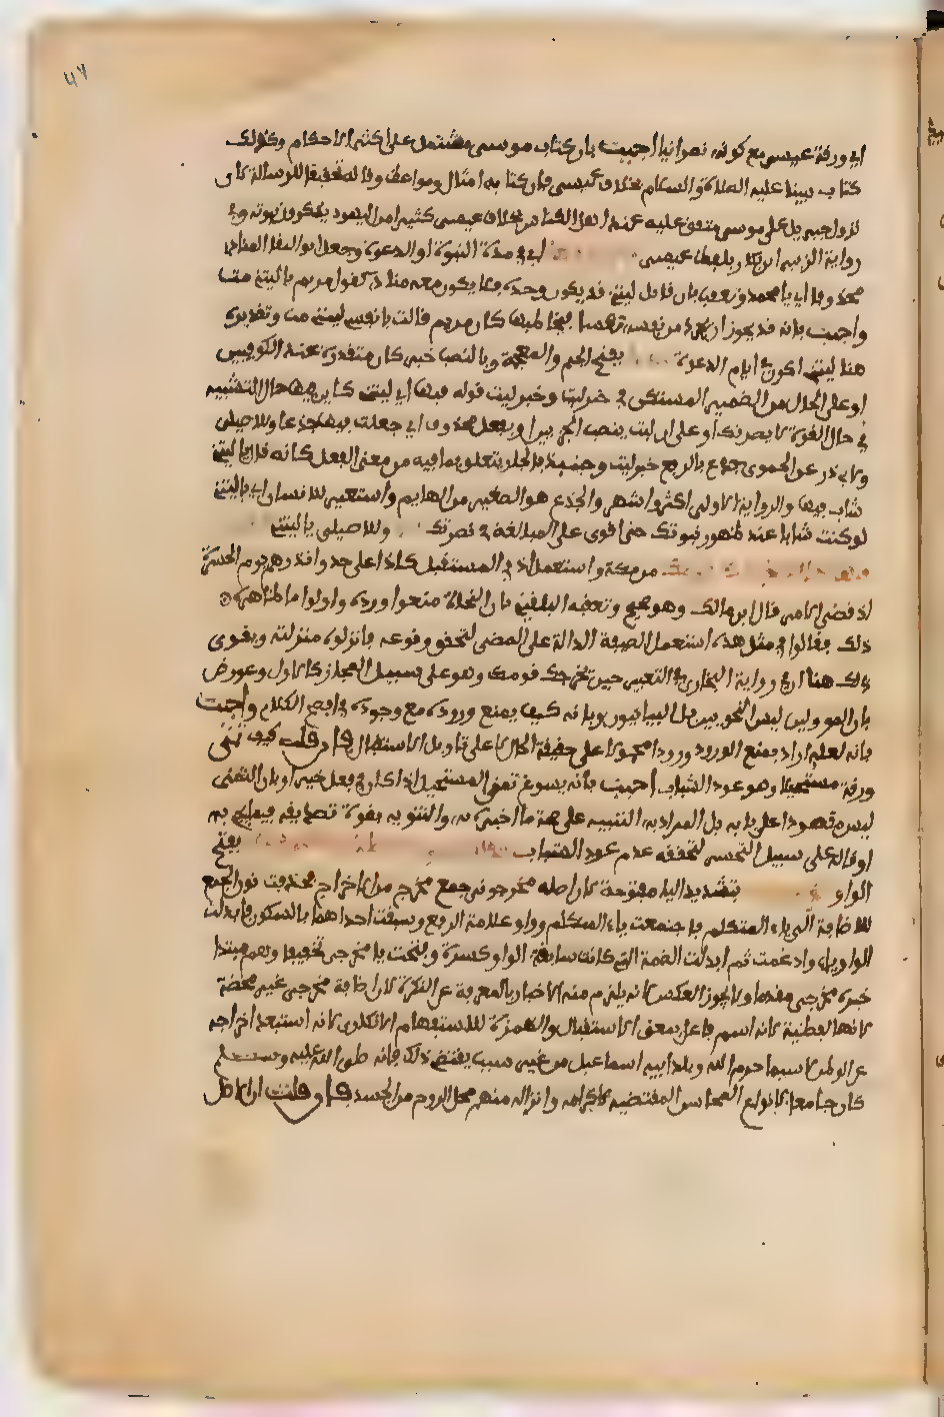 اي ورقة عيسى مع كونه نصرانيا اجيب بان كتاب موسى مشتمل على اكثر الاحكام وكذلك
كتاب نبينا عليه الصلاة والسلام بخلاف عيسى فان كتابه امثال ومواعظ وقاله تحقيقا للرسالة لان
نزول جبريل على موسى متفق عليه عند اهل الكتابين بخلاف عيسى كثير من اليهود ينكرون نبوته وفي
رواية الزبير ابن بكار بلفظ عيسى اي في مدة النبوة او الدعوة وجعل ابو البقا المنادى
محذوفا اي يا محمد وتعقب بان قائل ليتني قد يكون وحده فلا يكون معه منادى كقول مريم يا ليتني مت
واجيب بانه قد يجوز ان يجرد من نفسه نفسا يخاطبها كان مريم قالت يا نفسي ليتني مت وتقديره
هنا ليتني اكون في ايام الدعوة بفتح الجيم والمعجمة وبالنصب خبر كان مقدرة عند الكوفيين
او على الحال من الضمير المستكن في خبر ليت وخبر ليت قوله فيها اي ليتني كاين فيها حال الشبيبة
في حال القوة لانصرنك او على ان ليت ينصب الجزءين او بفعل محذوف اي جعلت فيها جذعا وللاصيلي
ولابي ذر عن الحموي جذع بالرفع خبر ليت وحينئذ فالجار يتعلق بما فيه من معنى الفعل كانه قال يا ليتني
شاب فيها والرواية الاولى اكثر واشهر والجذع هو الصغير من البهايم واستعير للانسان اي يا ليتني
لو كنت شابا عند ظهور نبوتك حتى اقوى على المبالغة في نصرتك وللاصيلي يا ليتني
من مكة واستعمل اذ في المستقبل كاذا على حد وانذرهم يوم الحسرة
اذ قضي الامر قال ابن مالك وهو صحيح وتعقبه البلقيني بان النحاة منعوا وروده واولوا ما ظاهره
ذلك فقالوا في مثل هذه استعمل الصيغة الدالة على المضي لتحقق وقوعه فانزلوه منزلته ويقوي
ذلك هنا ان في رواية البخاري في التعبير حين يخرجك قومك وهو على سبيل المجاز كالاول وعورض
بان المؤولين ليس النحويين بل البيانيون وبانه كيف يمنع وروده مع وجوده في افصح الكلام واجيب
بانه لعله اراد بمنع الورود ورودا محمولا على حقيقة الحال لا على تاويل الاستقبال فان قلت كيف تمنى
ورقة مستحيلا وهو عود الشباب اجيب بانه يسوغ تمني المستحيل اذا كان في فعل خير او بان التمني
ليس مقصودا على بابه بل المراد به التنبيه على صحة ما اخبره به والتنويه بقوة تصديقه فيما يجي به
او قاله على سبيل التحسر لتحققه عدم عود الشباب بفتح
الواو بتشديد اليا مفتوحة لان اصله مخرجوني جمع مخرج من الاخراج فحذفت نون الجمع
للاضافة الى ياء المتكلم فاجتمعت ياء المتكلم وواو علامة الرفع وسبقت احداهما بالسكون فابدلت
الواو ياء وادغمت ثم ابدلت الضمة التي كانت سابقة الواو كسرة وفتحت يا مخرجي تخفيفا وهم مبتدا
خبره مخرجي مقدما ولا يجوز العكس لانه يلزم منه الاخبار بالمعرفة عن النكرة لان اضافة مخرجي غير محضة
لانها لفظية لانه اسم فاعل بمعنى الاستقبال والهمزة للاستفهام الانكاري لانه استبعد اخراجه
عن الوطن لا سيما حرم الله وبلد ابيه اسماعيل من غير سبب يقتضي ذلك فانه صلى الله عليه وسلم
كان جامعا لانواع المحاسن المقتضية لاكرامه وانزاله منهم محل الروح من الجسد فان قلت الاصل